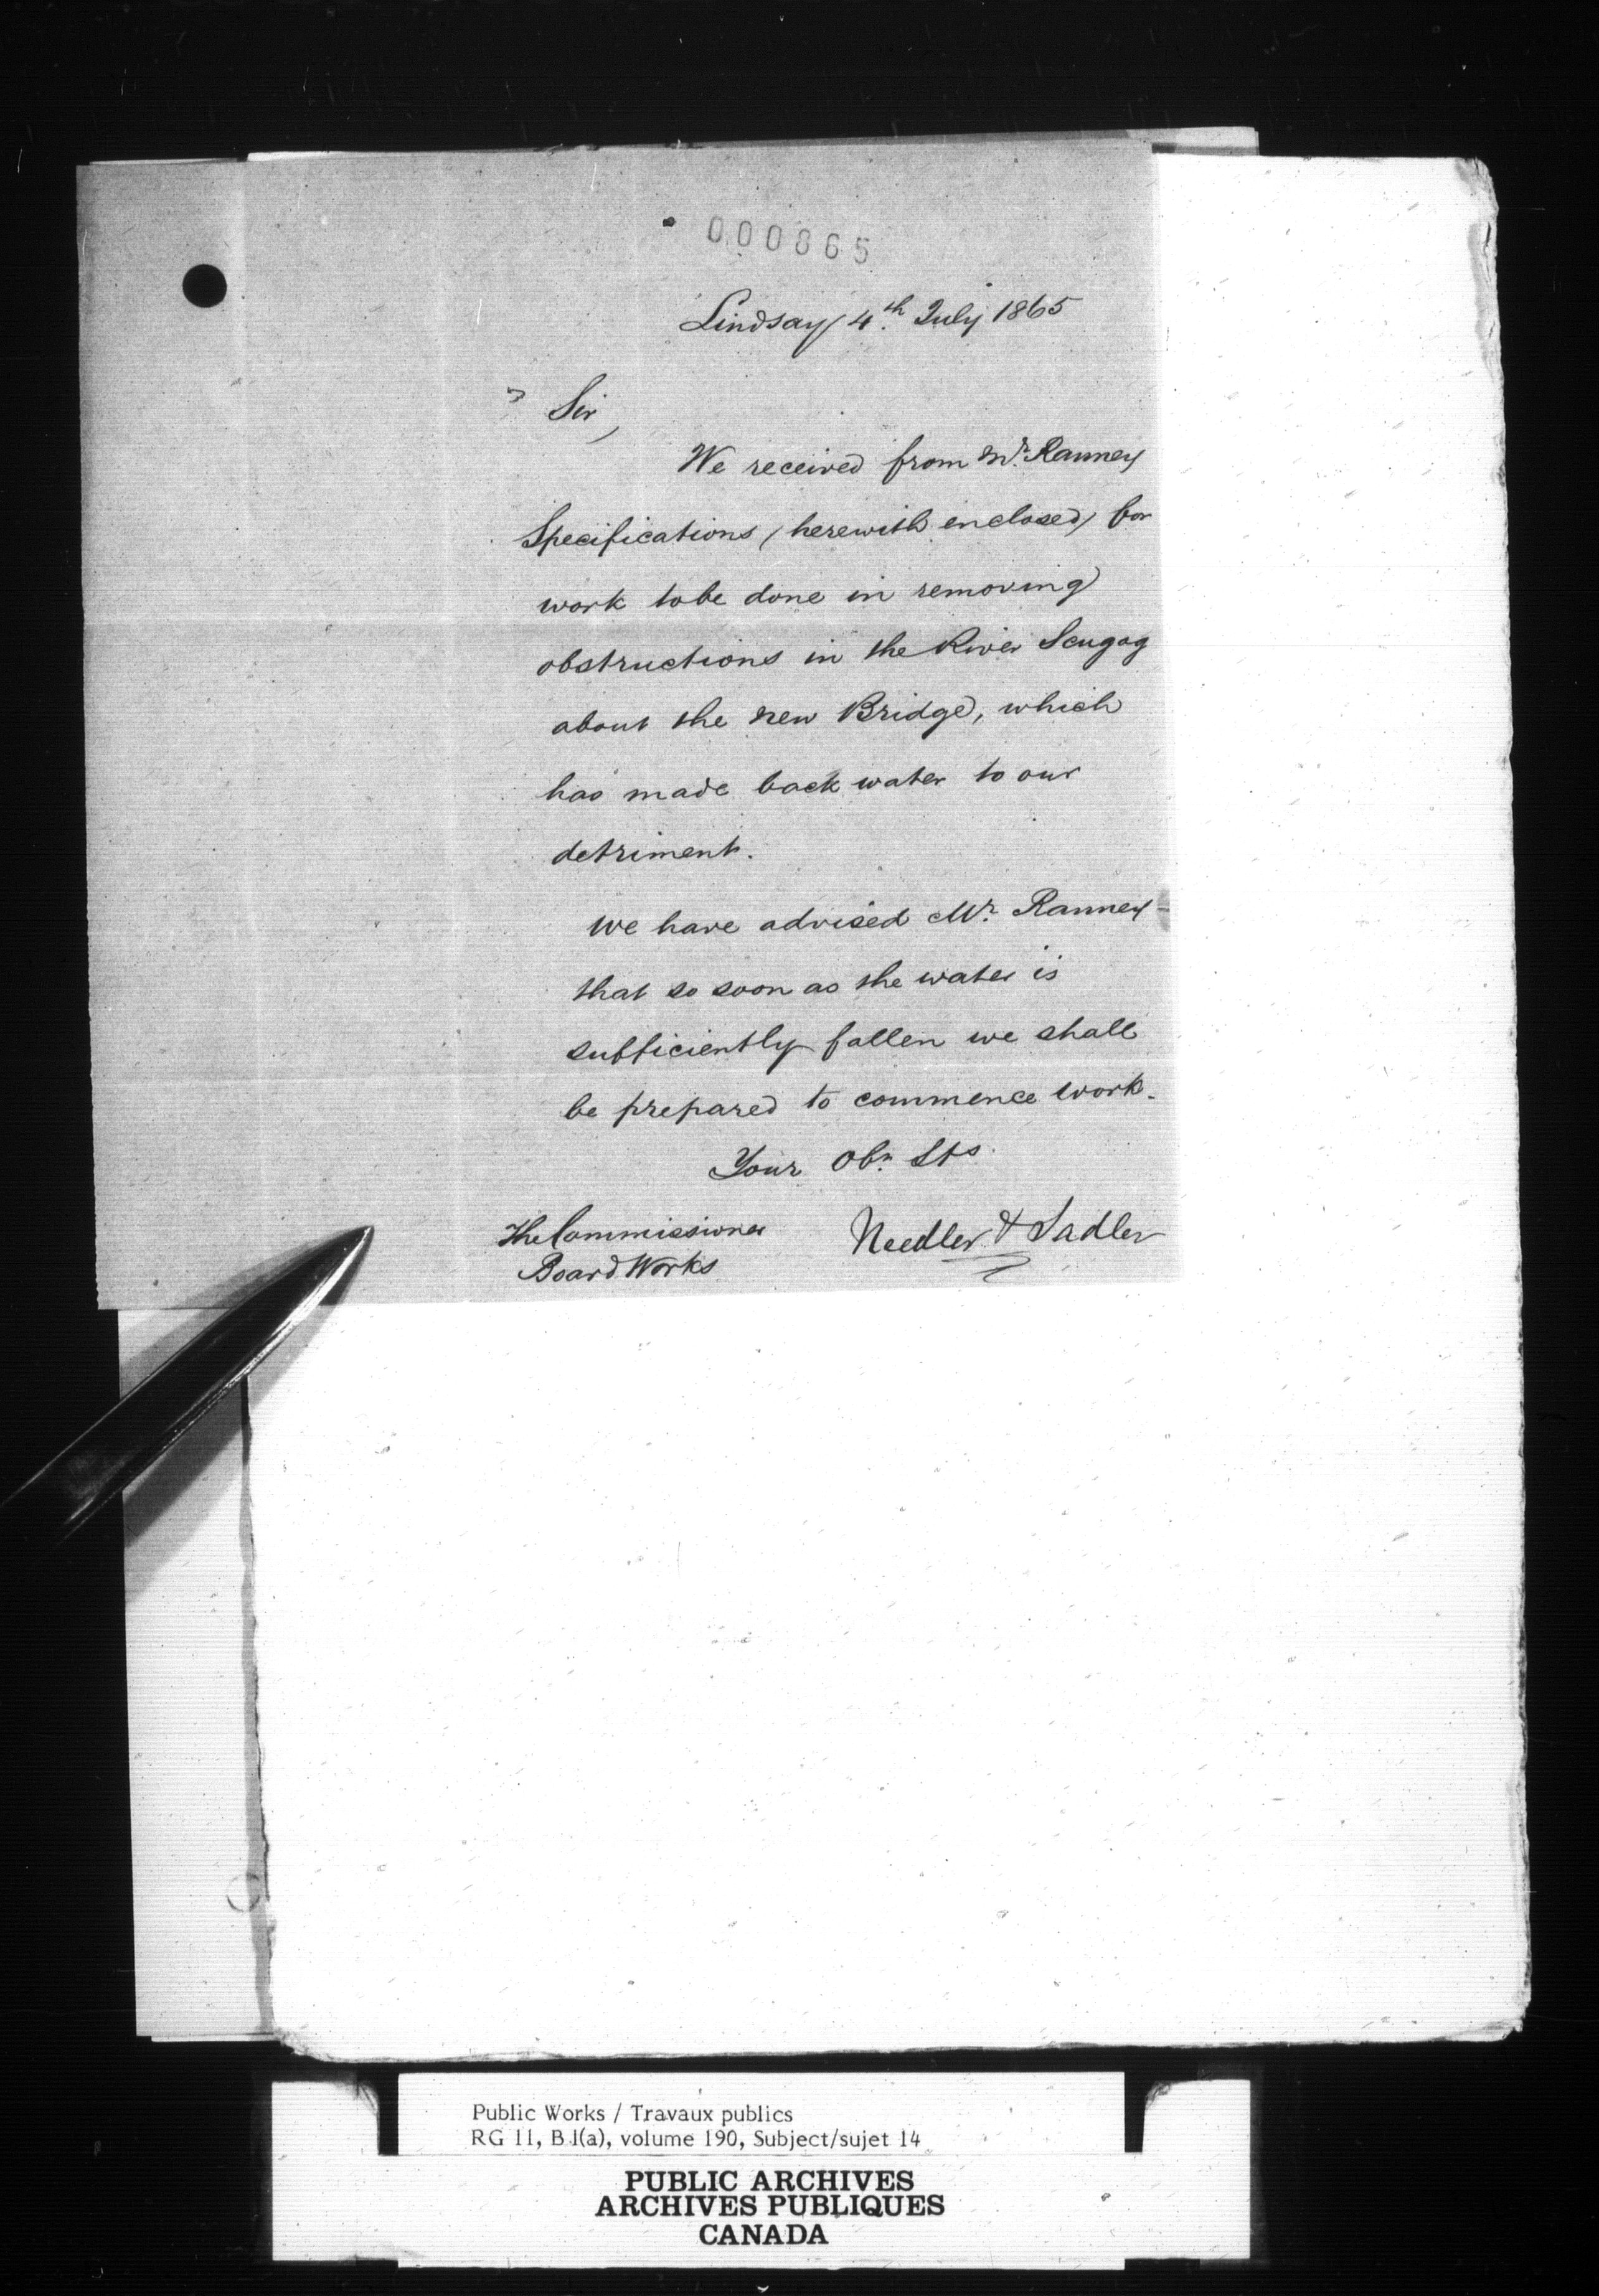 000865
Lindsay 4th July 1865
Sir,
We received from Mr. Ranney
Specifications (herewith enclosed) for
work to be done in removing
obstructions in the River Scugog
about the new Bridge, which
has made back water to our
detriment.
We have advised Mr. Ranney
that so soon as the water is
sufficiently fallen we shall
be prepared to commence work.
Your Obt. Sts
Needler & Sadler
The Commissioner
Board Works
Public Works / Travaux publics
RG 11, B1(a), volume 190, Subject/sujet 14
PUBLIC ARCHIVES
ARCHIVES PUBLIQUES
CANADA